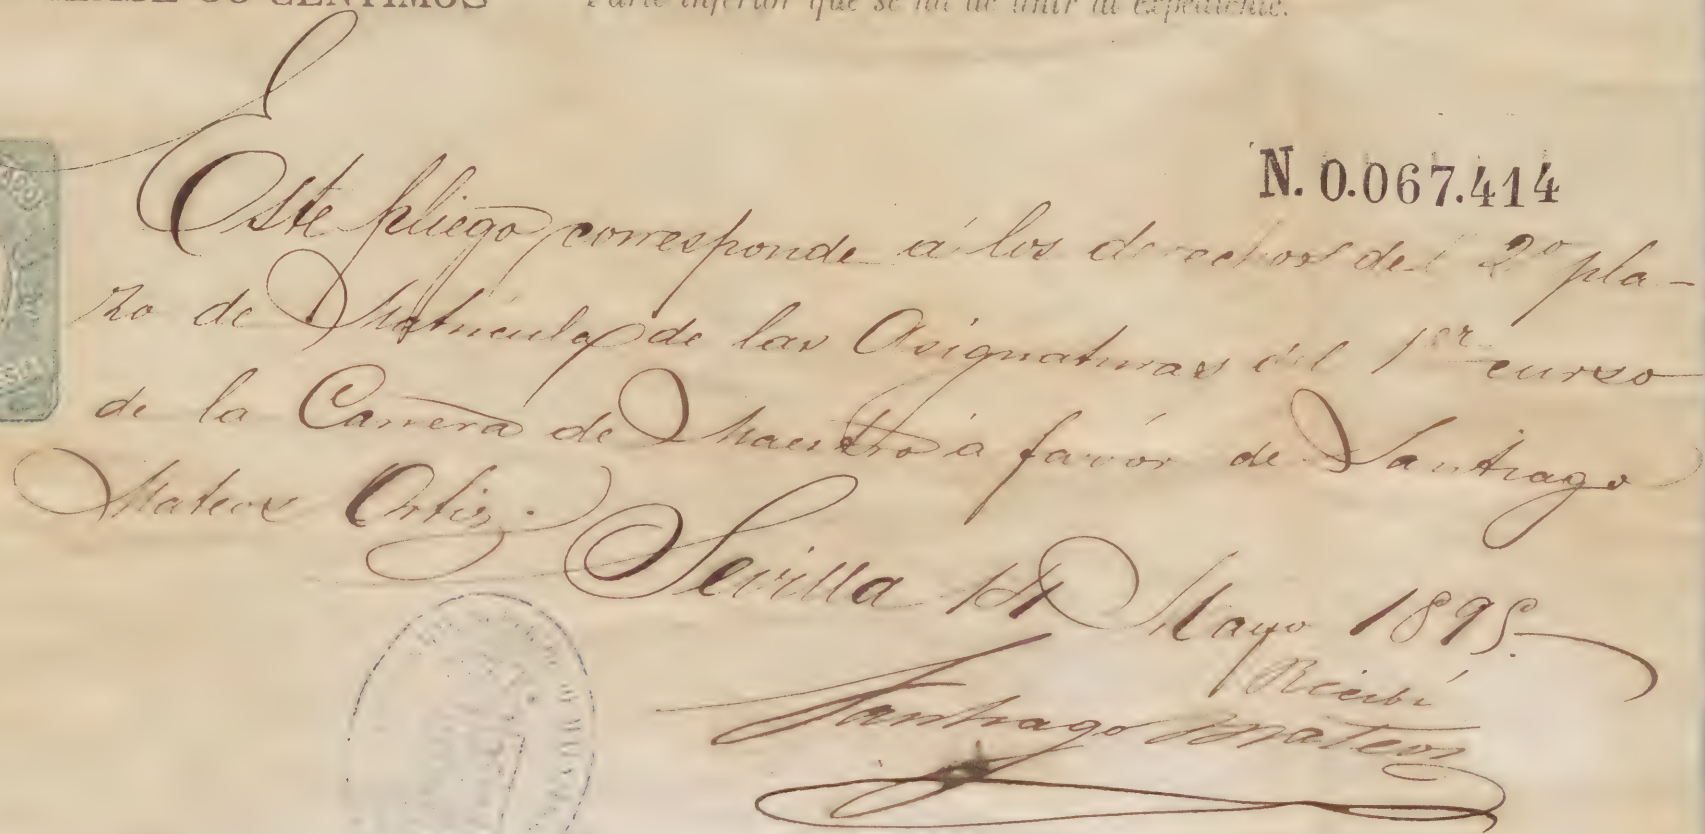 CENTIMOS Parte inferior que se ha de unir al expediente.
N. 0.067.414
Este pliego corresponde á los derechos del 2º pla-
zo de Matricula de las Asignaturas del 1er curso
de la Carrera de Maestro á favor de Santiago
Mateos Ortiz.
Sevilla 14 Mayo 1895.
Recibí
Santiago Mateos